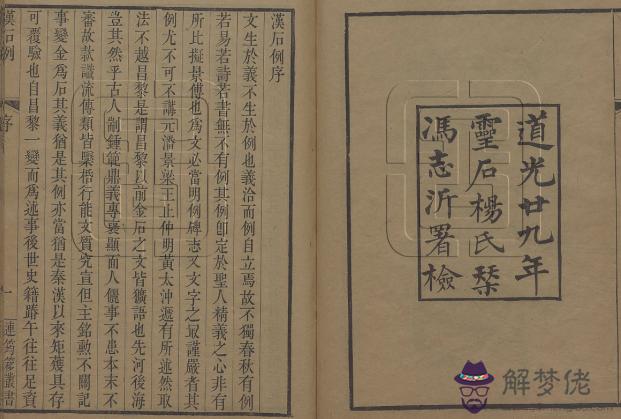 道光廿九年
靈石楊氏栞
馮志沂署檢
漢石例序
文生於義不生於例也義洽而例自立焉故不獨春秋有例
若易若詩若書無不有例其例卽定於聖人精義之心非有
所比擬景傅也爲文必當明例碑志又文字之最謹嚴者其
例尤不可不講元潘景梁王止仲明黃太沖遞有所述然取
法不越昌黎是謂昌黎以前金石之文皆獷語也先河後海
豈其然乎古人制鍾範鼎義專褒顯而人儷事不患本末不
審故款識流傳類皆槩栝行能文質究宣但主銘勲不關記
事變金爲石其義猶是其例亦當猶是秦漢以來矩矱具存
可覆驗也自昌黎一變而爲述事後世史籍踳午往往足資
漢石例
序
一
連筠簃叢書
解梦佬